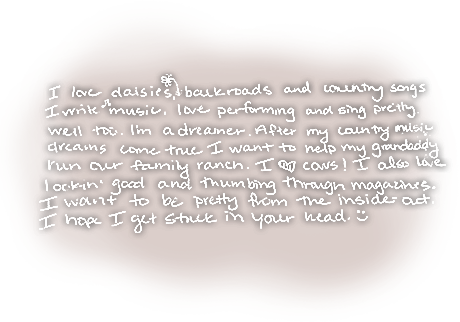 I love daisies, backroads and country songs
I write music, love performing and sing pretty
well too. I'm a dreamer. After my country music
dreams come true I want to help my grandaddy
run our family ranch. I cows! I also love
lookin' good and thumbing through magazines.
I want to be pretty from the inside-out.
I hope I get stuck in your head. :)